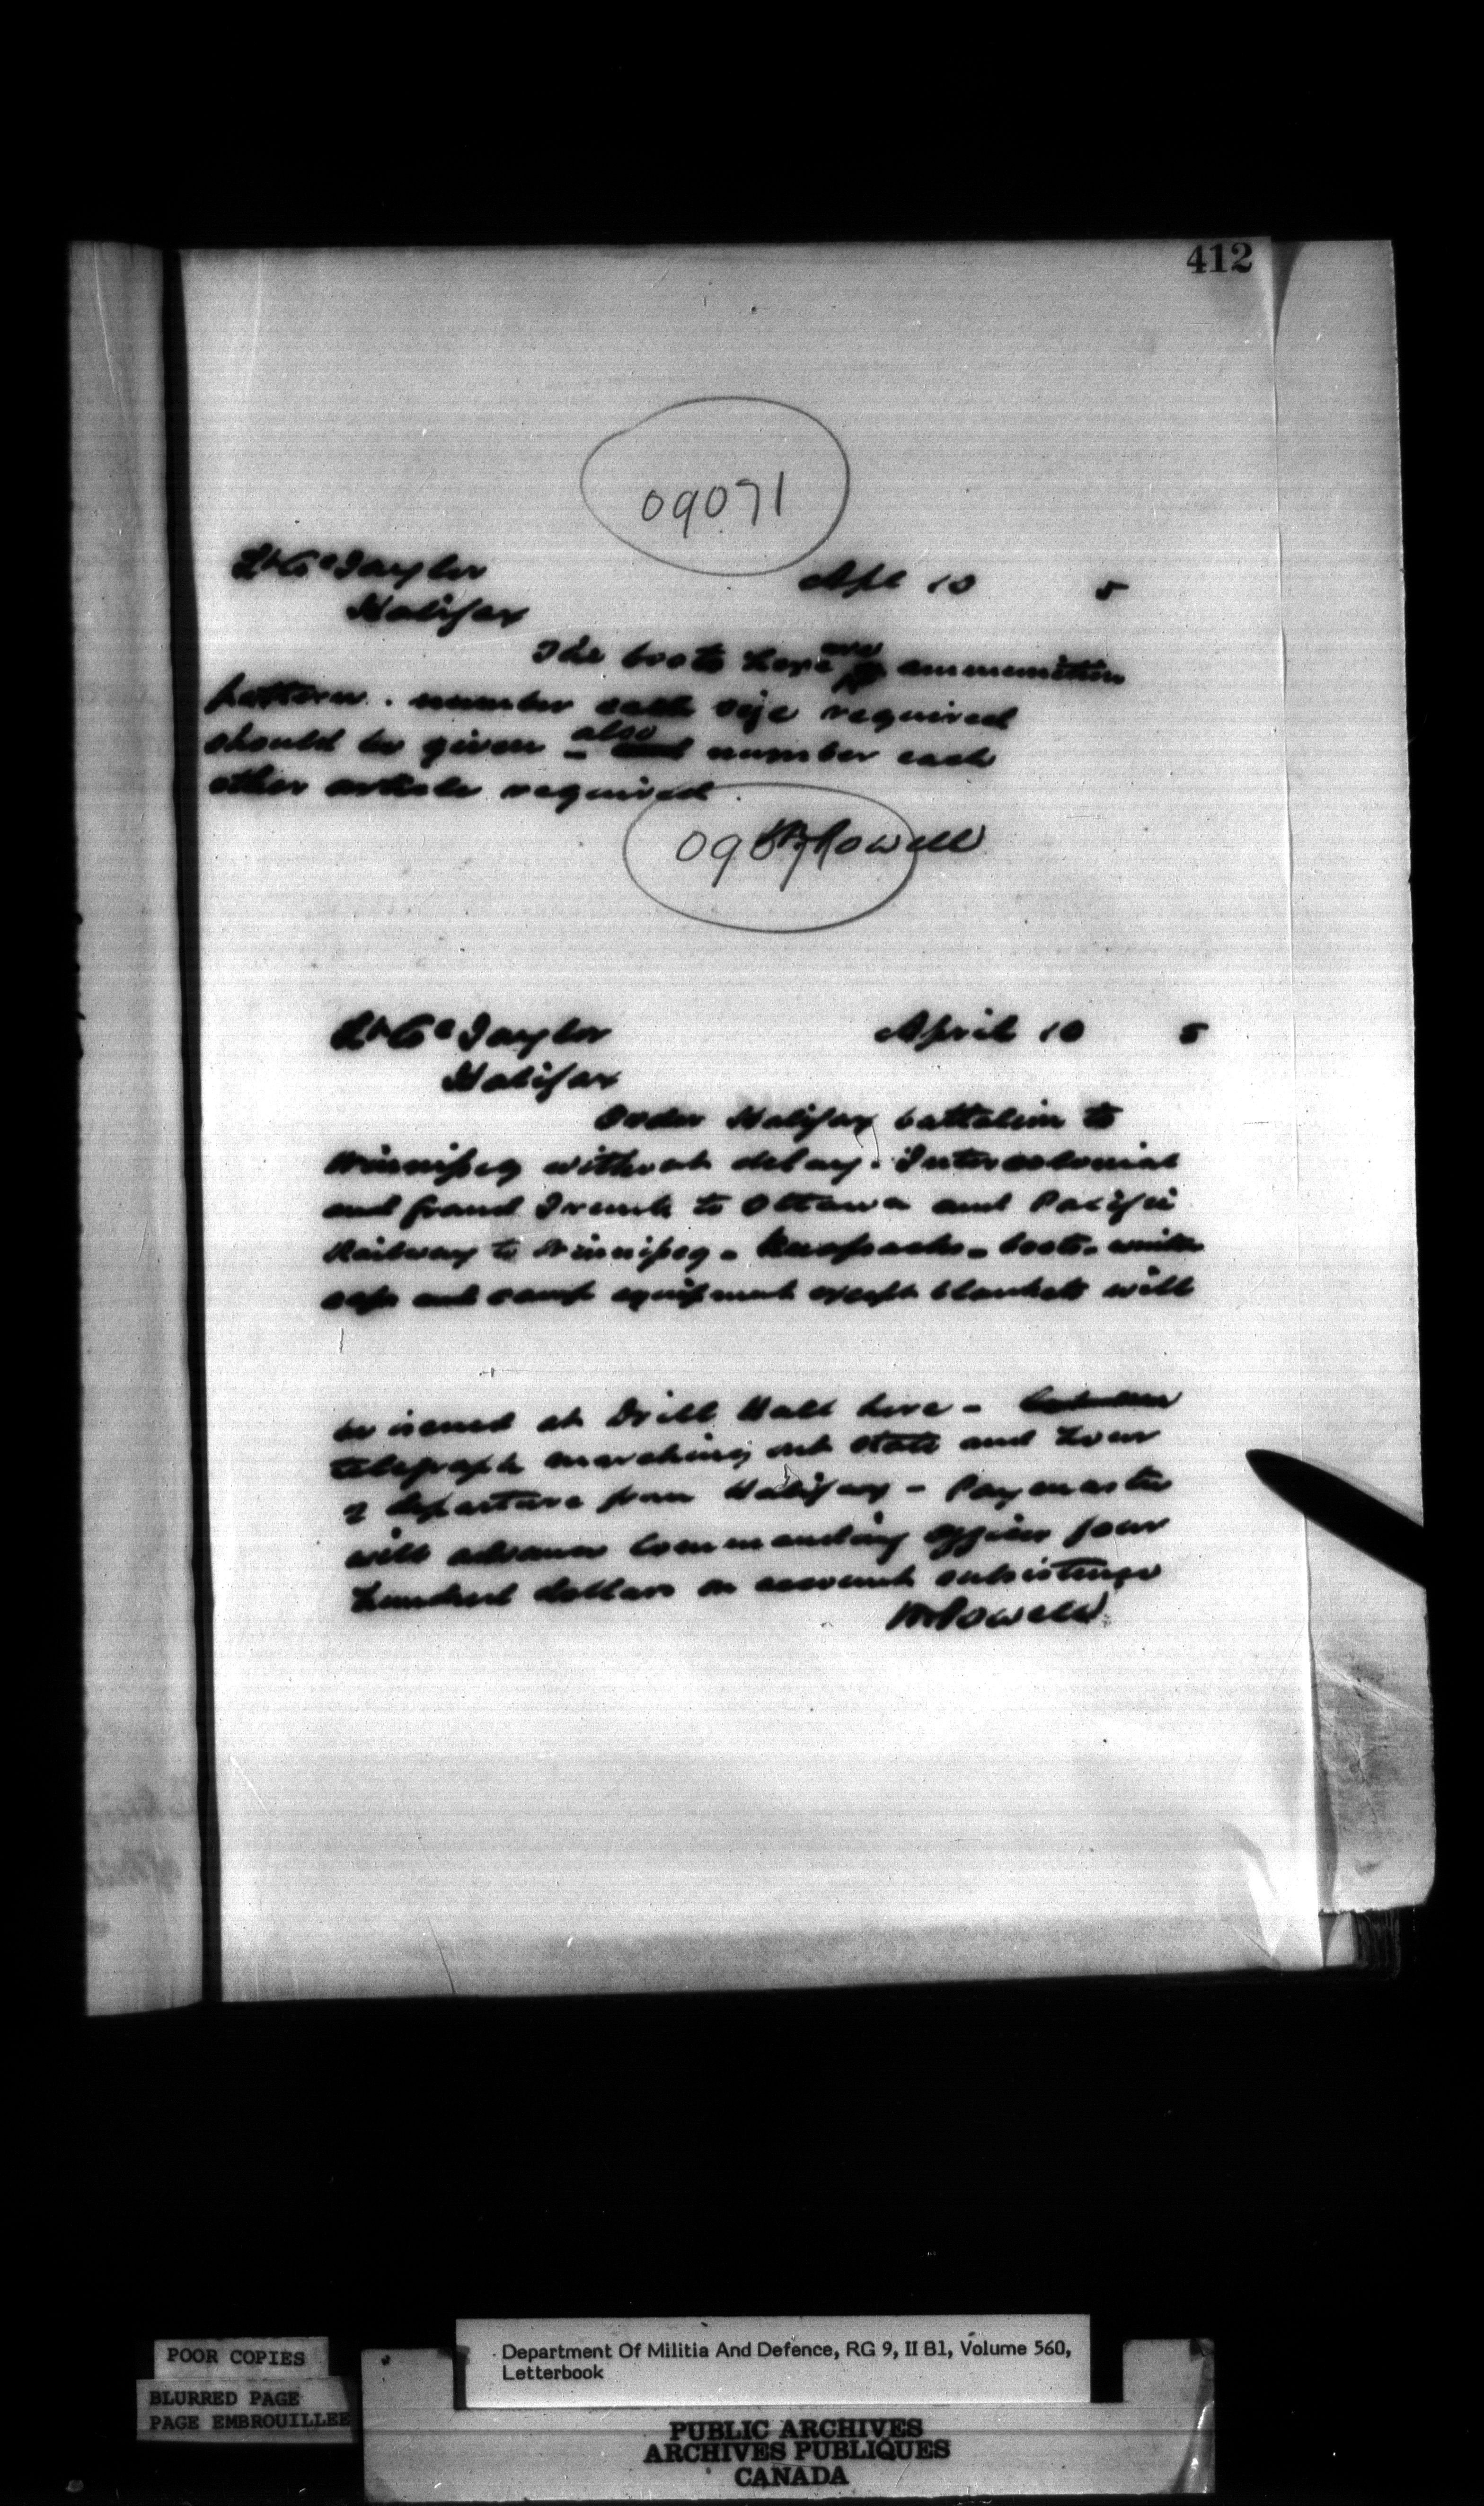 412
09071
Lt Col Taylor
Apl 10 5
Halifax
The boots here are ammunition
pattern. number each size required
should be given - also number each
other article required.
09071
W Powell
Lt Col Taylor
April 10 5
Halifax
Order Halifax battalion to
Winnipeg without delay. Intercolonial
and Grand Trunk to Ottawa and Pacific
Railway to Winnipeg - Knapsacks - boots - winter
caps and camp equipment except blankets will
be issued at Drill Hall here -
telegraph marching out state and hour
of departure from Halifax - Paymaster
will advance Commanding officer four
hundred dollars on account subsistence
W Powell
POOR COPIES
BLURRED PAGE
PAGE EMBROUILLEE
Department Of Militia And Defence, RG 9, II B1, Volume 560,
Letterbook
PUBLIC ARCHIVES
ARCHIVES PUBLIQUES
CANADA